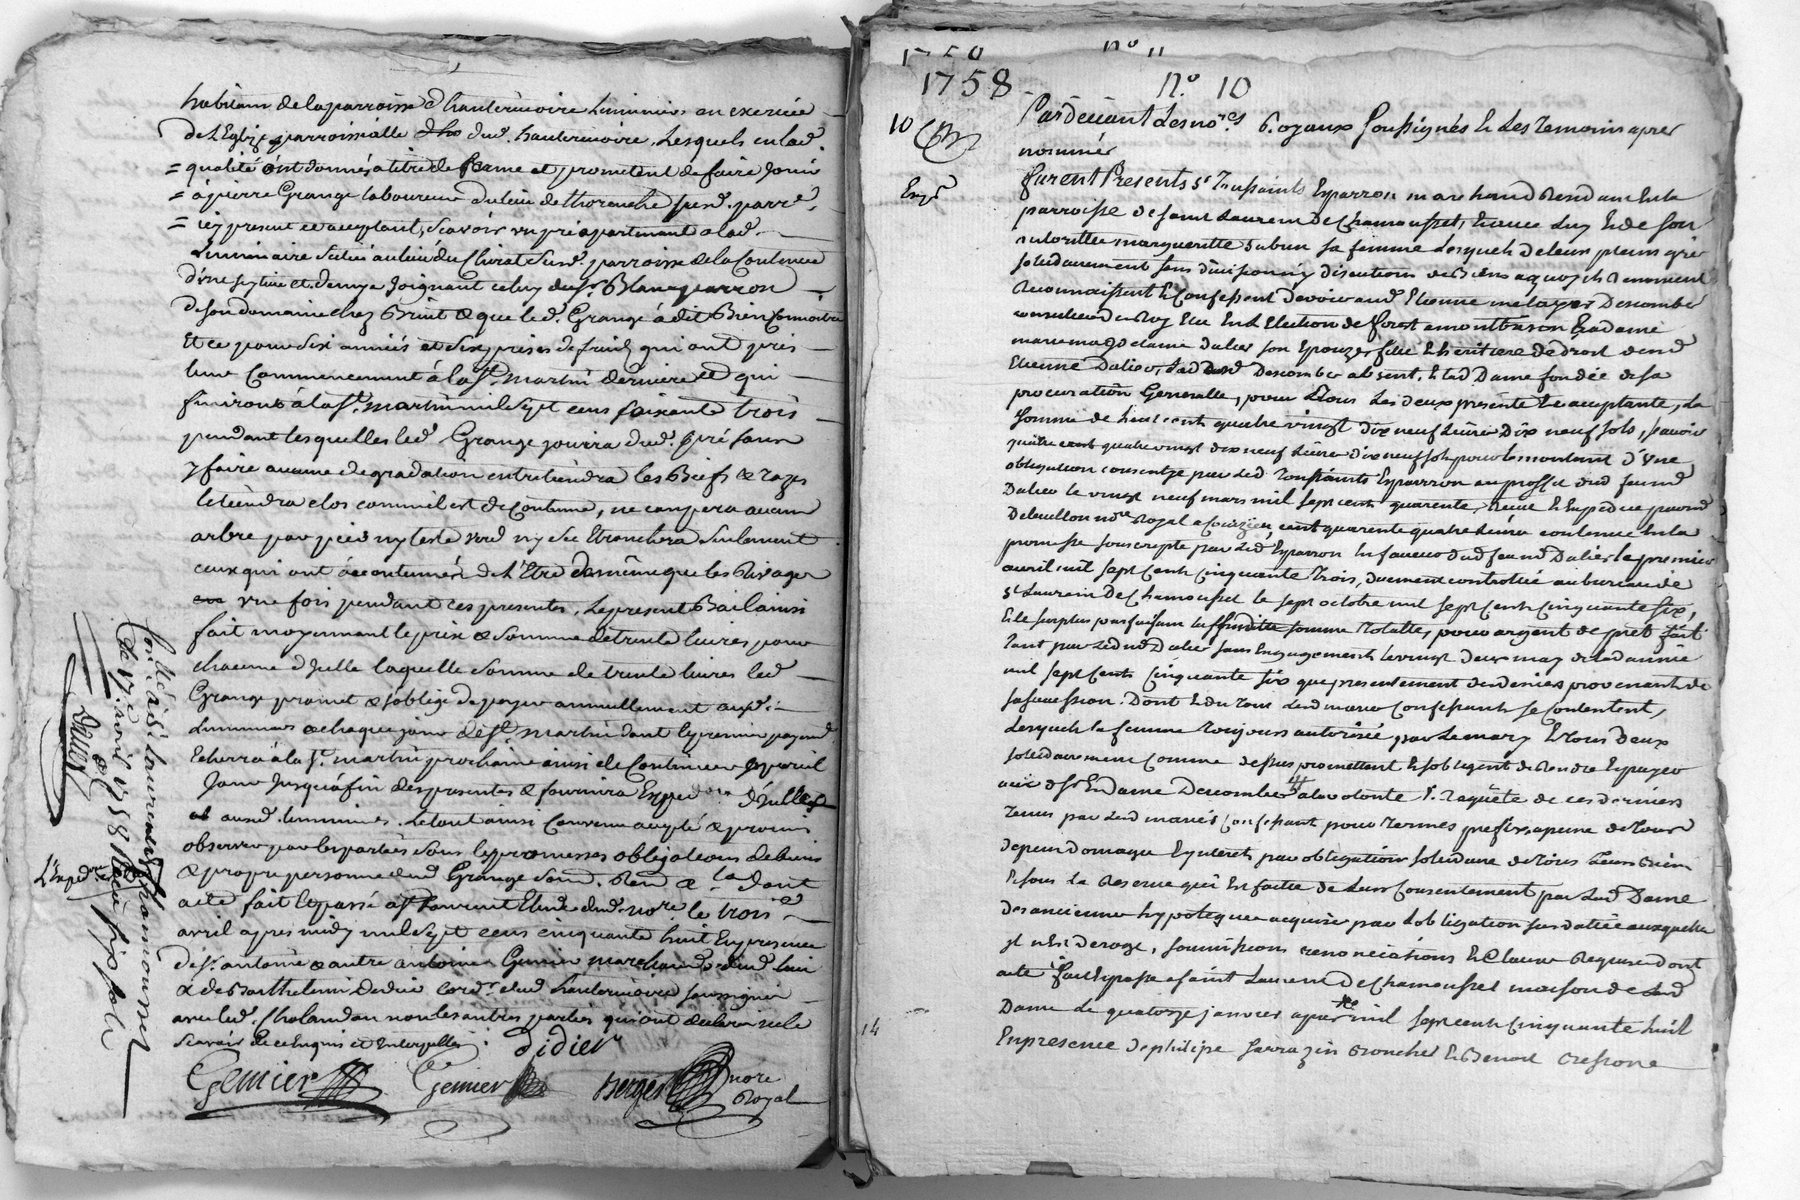 habitans de la parroisse d'hauterivoire luminiers en exercice
de l'Eglize parroissialle dud. hauterivoire, Lesquels en lad.
= qualité ont donnés a titre de ferme et prometent de faire jouir
= à pierre Grange laboureur du lieu de thorenche susd. parre.
= icy present et acceptant, scavoir un pré apartenant a lad.
Luminaire situé au lieu du Chirat susd. parroisse de la Contenue
joignant celuy du sr. Blanc parron
de son domaine chez Brint & que led. Grange à dit Bien Connoitre
Et ce pour six années et six prises de fruits qui ont pris
leur Commencement à la st. martin derniere et qui
finiront à la st. martin mil sept cens soixante trois
pendant lesquelles led. Grange jouira dud. pré sans
y faire aucune degradation entretiendra les Biefs & razes
le tiendra clos comme il est de Coutume, ne coupera aucun
arbre par pied ny teste verd ny sec Etronchera seulement
ceux qui ont accoutumés de l'Etre de même que les Rivages
une fois pendant ces presentes, Le present Bail ainsi
fait moyennant le prix & somme de trente livres pour
chacune d'jcelle laquelle somme de trente livres led.
Grange promet & s'oblige de payer annuellement auxd.
Luminiers a chaque jour de st. martin dont le premier payemt.
Echerra à la st. martin prochaine ainsi de Continuer a pareil
Jour Jusqu'à fin des presentes & fournira Exped d'icelles
auxd. luminiers. Le tout ainsi Convenu accepté & promis
observer par les parties sous les promesses obligations de biens
& propre personne dud. Grange soum. Ren. & Cla. dont
acte fait et passé a st. Laurent Etude dud. nore. le trois
avril apres midy mil sept cens cinquante huit En presence
de sr. antoine & autre antoine Gemier marchands dud. lieu
& de Barthelemy Dedier cordr. dud. hauterivoire soussignés
avec led. Cholandon non les autres parties qui ont declaré ne le
scavoir de ce Enquis et Interpellés. Didier
Gemier Gemier Berger nore
Royal
Contlé. à st Laurent de chamousset
le 17e avril 1758 Reçu six sols
L'Exped.
1758 no 11
1758. N.o 10
10
Par devant Les nores. Royaux Soussignés & Les Temoins apres
nommés
Exped
furent Presents sr. Toussaints Esparron marchand Residant En la
parroisse de saint Laurent De Chamousset, & avec luy & de son
autorittée margueritte Subrin sa femme Lesquels de leur plein gré
solidairement sans division ny discutions de Biens a quoy ils renoncent
reconnaissent & Confessent devoir au sr. Etienne Descombes
conseiller du Roy Elu En L'Election de forest a montbrison & a dame
marie magdelaine Dalier son Epouze fille & heritiere de droit de sr.
Etienne Dalier, led sr. Descombes absent, & lad Dame fondée de sa
procuration Generalle, pour Tous Les deux presente & acceptante, La
somme de huit cent quatre vingt dix neuf Livres dix neuf sols, scavoir
quatre cent quatre vingt dix neuf Livres dix neuf sols pour le montant d'une
obligation consentye par led. Toussaints Esparron au proffit dud feu sr.
Dalier le vingt neuf mars mil sept cent quarente, Receue & Expediée par sr.
nore. Royal cent quarente quatre Livres contenue En la
promesse souscripte par led. Esparron En faveur dud feu sr. Dalier le premier
avril mil sept Cent Cinquante trois, duement controllée au bureau de
st Laurent De Chamousset le sept octobre mil sept Cent Cinquante six,
& le surplus parfaisant la susditte somme Totalle, pour argent de pret fait
tant par led sr Dalier sans Engagement le vingt deux may de lad année
mil sept Cent Cinquante six que presentement des deniers provenants de
sa succession. Dont & du Tout Lesd mariés Confessants se Contentent,
Lesquels la femme toujours autorisée par Le mary & tous Deux
solidairement comme dessus promettent & s'obligent de Rendre & payer
aux dsr. & Dame Descombes a la volonté & Raquête de ces derniers
tenus par Lesd mariés Confessant pour termes prefix a peine de tous
depens domages & interets par obligation solidaire de tous leurs Biens
& sous la Reserve qui Est faitte de Leur Consentement par Lad Dame
des anciennes hypoteques acquises par l'obligation sus datée auxquelles
il n'Est derogé, soumissions renonciations & Clauses Requises dont
acte fait & passé a saint Laurent De Chamousset maison de Lad
Dame Le quatorze janvier apres mil sept cent Cinquante huit
14
En presence de philipe Sarrazin & Benoit Cressone